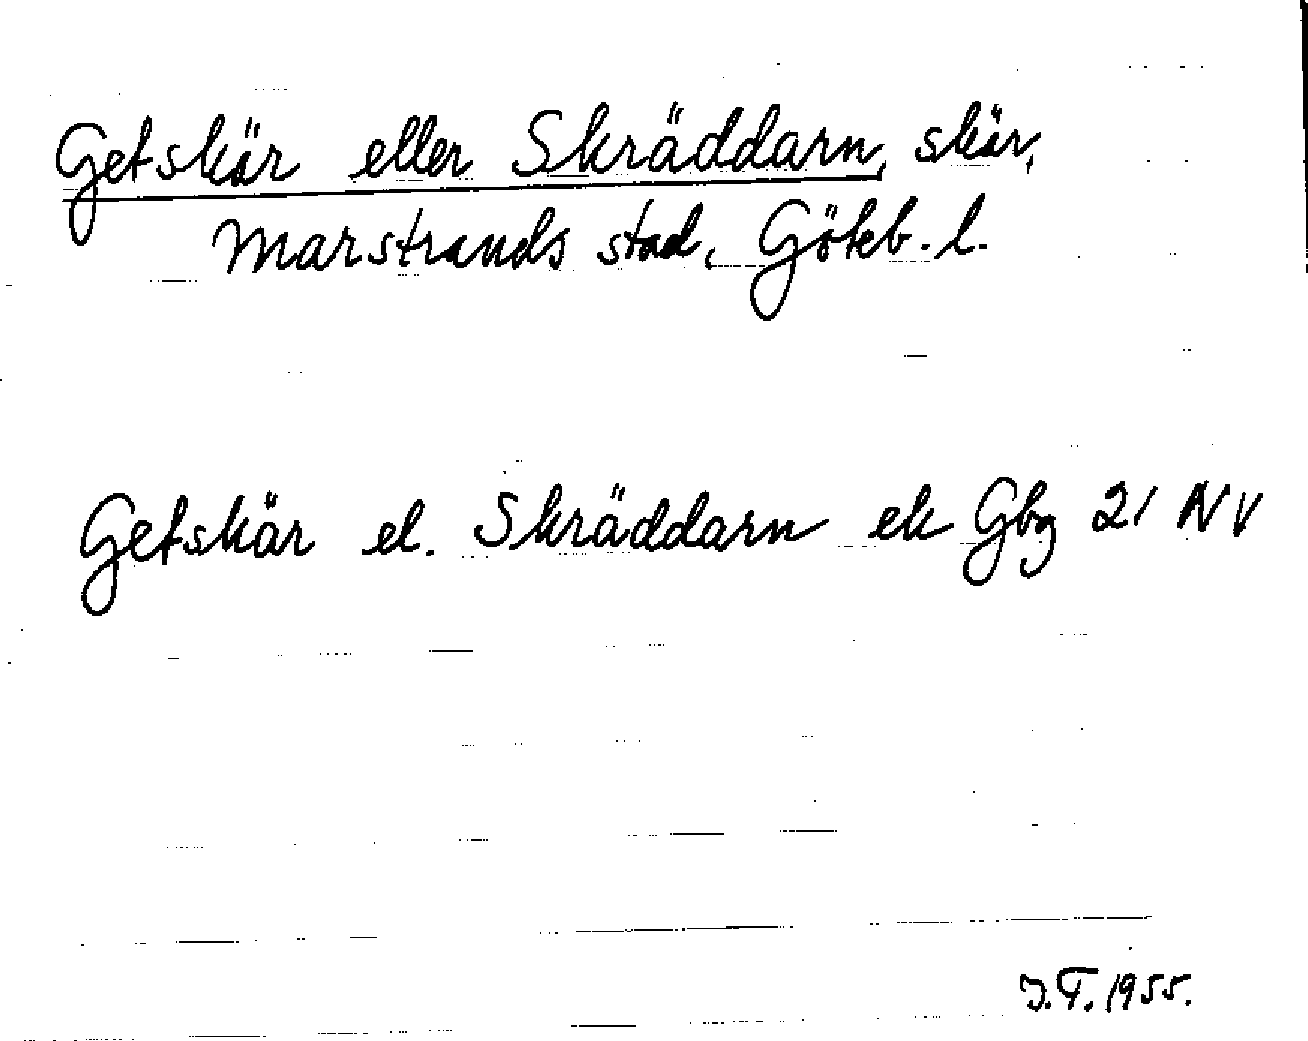 Getskär eller Skräddarn, skär,
Marstrands stad, Göteb. l.
Getskär el. Skräddarn ek Gbg 21 NV
I.T. 1955.